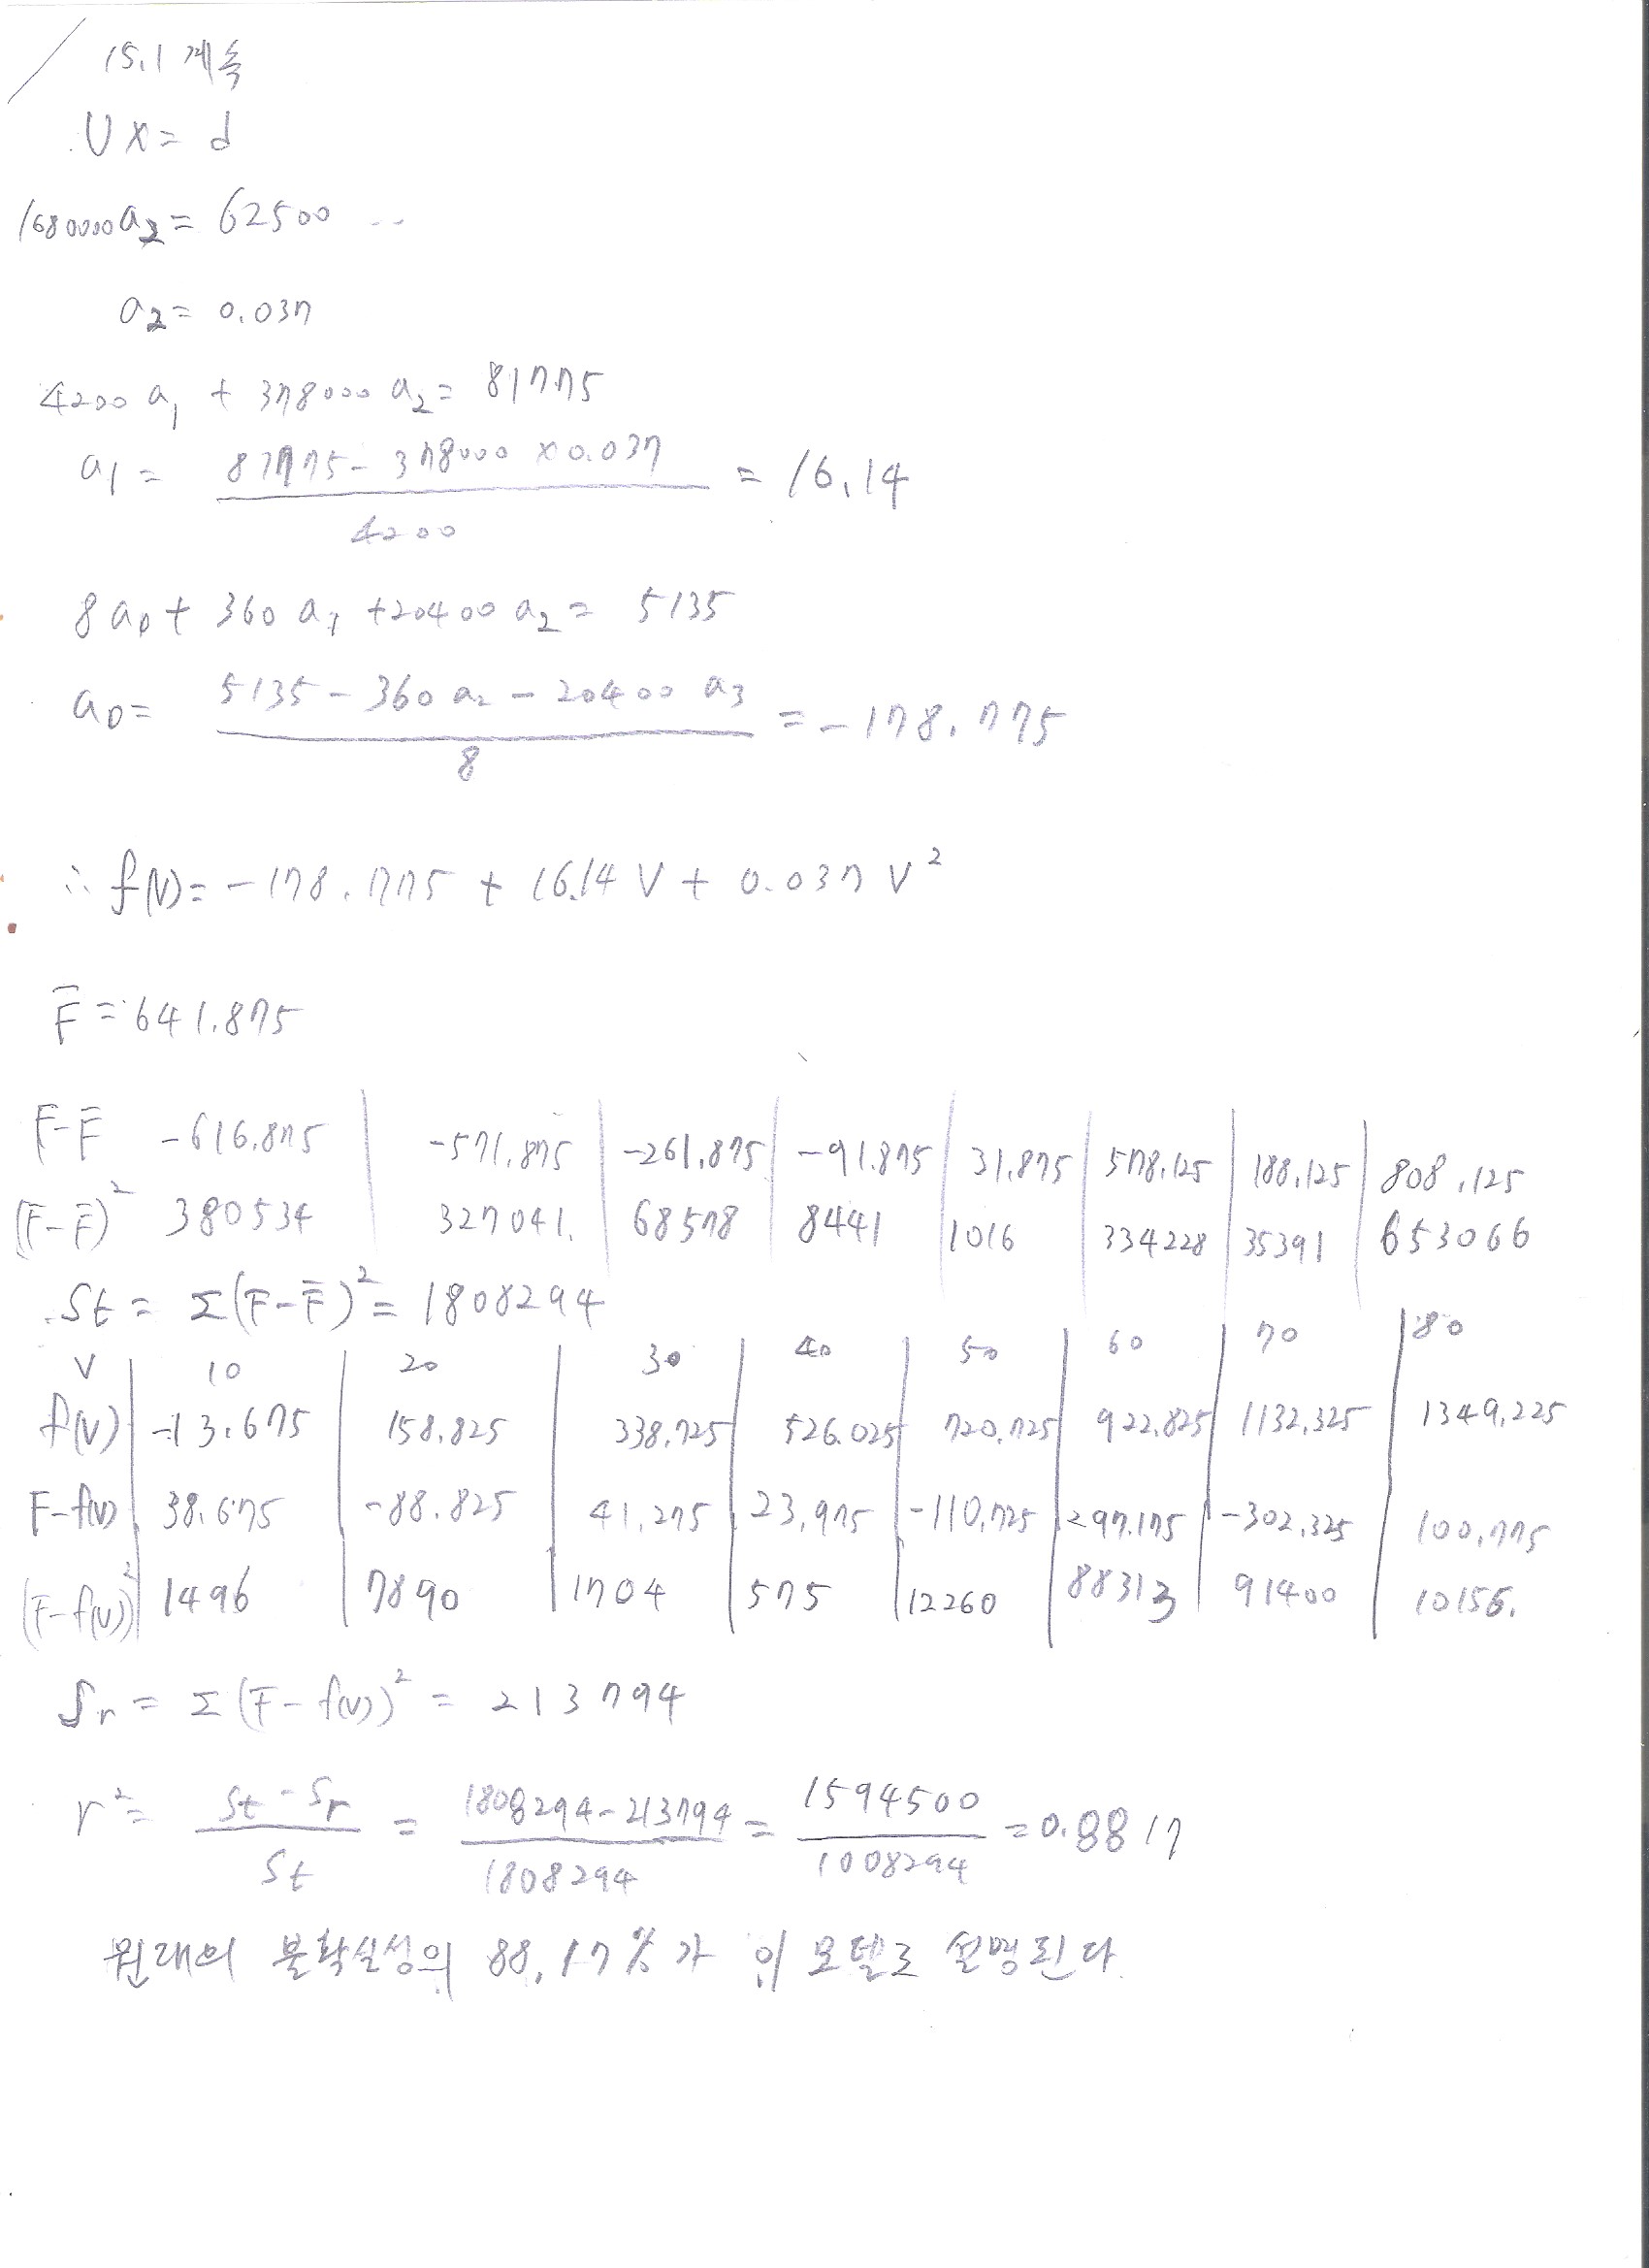 15.1 계속
UX = d
1680000 a2 = 62500 ...
a2 = 0.037
4200 a1 + 378000 a2 = 81775
a1 = (81775 - 378000 × 0.037) / 4200 = 16.14
8 a0 + 360 a1 + 20400 a2 = 5135
a0 = (5135 - 360 a2 - 20400 a3) / 8 = -178.775
∴ f(V) = -178.775 + 16.14 V + 0.037 V²
F̄ = 641.875
F-F̄ -616.875 | -571.875 | -261.875 | -91.875 | 31.875 | 578.125 | 188.125 | 808.125
(F-F̄)² 380534 327041. | 68578 | 8441 | 1016 | 334228 | 35391 | 653066
St = Σ(F-F̄)² = 1808294
V | 10 | 20 | 30 | 40 | 50 | 60 | 70 | 80
f(V) | -13.675 | 158.825 | 338.725 | 526.025 | 720.725 | 922.825 | 1132.325 | 1349.225
F-f(V) | 38.675 | -88.825 | 41.275 | 23.975 | -110.725 | 297.175 | -302.325 | 100.775
(F-f(V))² | 1496 | 7890 | 1704 | 575 | 12260 | 88313 | 91400 | 10156.
Sr = Σ(F-f(V))² = 213794
r² = (St - Sr) / St = (1808294 - 213794) / 1808294 = 1594500 / 1008294 = 0.8817
원래의 불확실성의 88.17%가 이 모델로 설명된다.